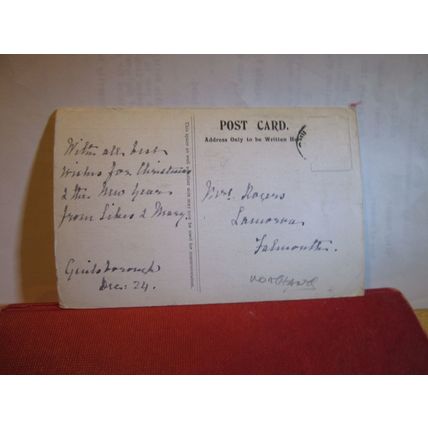 POST CARD.
Address Only to be Written He
With all best
wishes for Christmas
& the New Year
from Sikes & Mary.
Guilsborough
Dec: 24.
This space as well as other side may now be used for communication.
Mrs. Rogers
Lamorva
Falmouth.